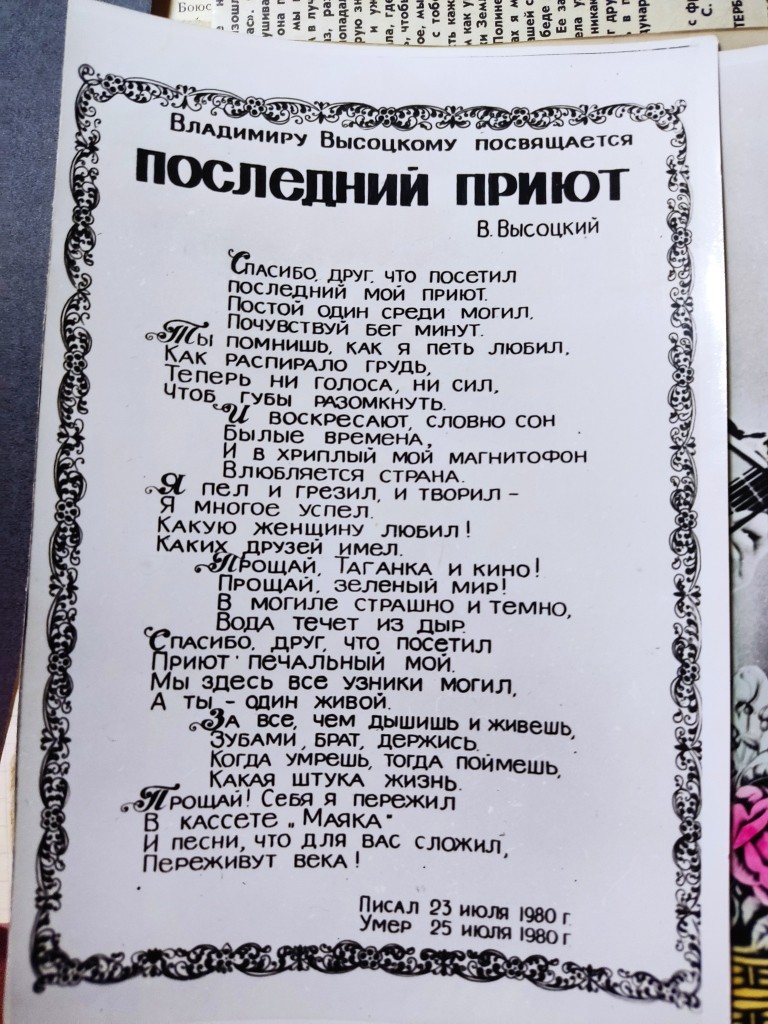 Боюс
Владимиру Высоцкому посвящается
ПОСЛЕДНИЙ ПРИЮТ
В. Высоцкий
Спасибо, друг, что посетил
последний мой приют.
Постой один среди могил,
Почувствуй бег минут.
Ты помнишь, как я петь любил,
Как распирало грудь,
Теперь ни голоса, ни сил,
Чтоб губы разомкнуть.
И воскресают, словно сон
Былые времена,
И в хриплый мой магнитофон
Влюбляется страна.
Я пел и грезил, и творил –
Я многое успел.
Какую женщину любил!
Каких друзей имел.
Прощай, Таганка и кино!
Прощай, зеленый мир!
В могиле страшно и темно,
Вода течет из дыр.
Спасибо, друг, что посетил
Приют печальный мой.
Мы здесь все узники могил,
А ты – один живой.
За все, чем дышишь и живешь,
Зубами, брат, держись.
Когда умрешь, тогда поймешь,
Какая штука жизнь.
Прощай! Себя я пережил
В кассете „Маяка"
И песни, что для вас сложил,
Переживут века!
Писал 23 июля 1980 г.
Умер 25 июля 1980 г.